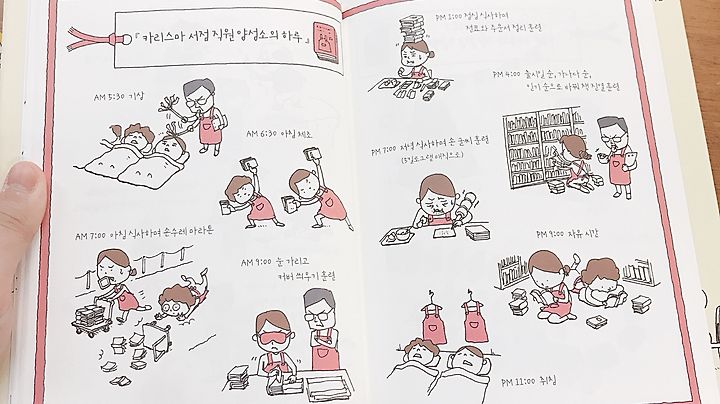 『카리스마 서점 직원 양성소의 하루』
AM 5:30 기상
AM 6:30 아침 체조
AM 7:00 아침 식사하며 손수레 마라톤
AM 9:00 눈 가리고
커버 씌우기 훈련
PM 1:00 점심 식사하며
전표와 주문서 정리 훈련
PM 4:00 출시일 순, 가나다 순,
인기 순으로 바꿔 책 진열 훈련
PM 7:00 저녁 식사하며 손 글씨 훈련
(3킬로그램 매직으로)
PM 9:00 자유 시간
PM 11:00 취침